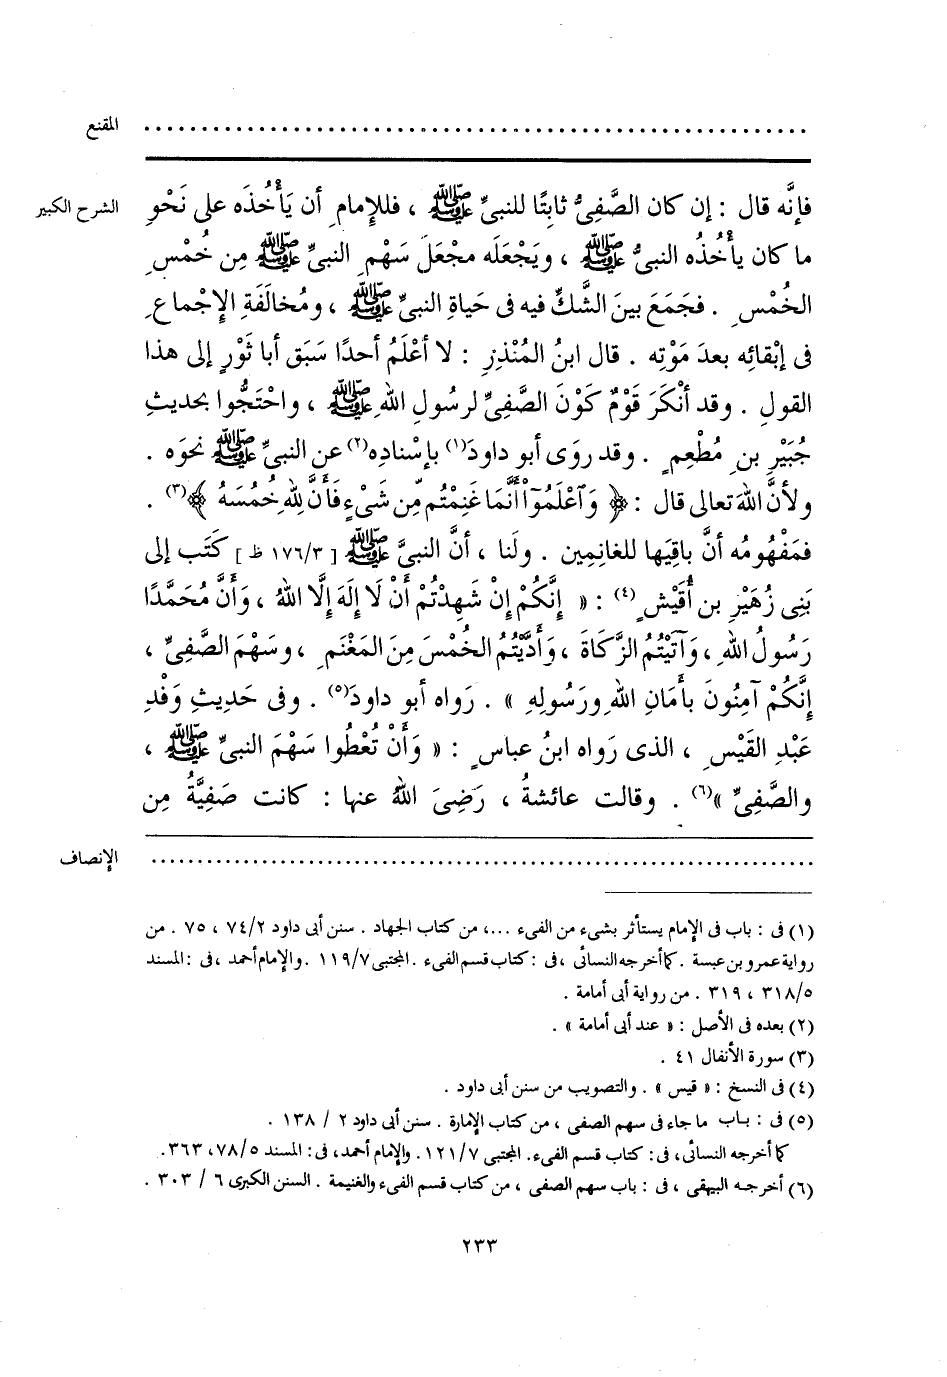 المقنع ............................................................
الشرح الكبير
فإنَّه قال : إن كان الصَّفِىُّ ثابِتًا للنبىِّ ﷺ ، فللإمامِ أن يَأْخُذَه على نَحْوِ
ما كان يأْخُذُه النبىُّ ﷺ ، ويَجْعَلَه مجْعَلَ سَهْمِ النبىِّ ﷺ مِن خُمْسِ
الخُمْسِ . فجَمَعَ بينَ الشَّكِّ فيه فى حَياةِ النبىِّ ﷺ ، ومُخالَفَةِ الإِجْماعِ
فى إبْقائِه بعدَ مَوْتِه . قال ابنُ المُنْذِرِ : لا أعْلَمُ أحدًا سَبَق أبا ثَوْرٍ إلى هذا
القولِ . وقد أنْكَرَ قَوْمٌ كَوْنَ الصَّفِىِّ لرسُولِ اللهِ ﷺ ، واحْتَجُّوا بحديثِ
جُبَيْرِ بنِ مُطْعِمٍ . وقد روَى أبو داودَ(١) بإسْنادِه(٢) عن النبىِّ ﷺ نحوَه .
ولأنَّ اللهَ تعالى قال : ﴿ وَاعْلَمُوٓاْ أَنَّمَا غَنِمْتُم مِّن شَىْءٍ فَأَنَّ لِلَّهِ خُمُسَهُۥ ﴾(٣) .
فمَفْهُومُه أنَّ باقِيَها للغانِمِين . ولَنا ، أنَّ النبىَّ ﷺ [ ١٧٦/٣ ظ ] كَتَب إلى
بَنِى زُهَيْرِ بن أُقَيْشٍ(٤) : « إنَّكُمْ إنْ شَهِدْتُمْ أَنْ لَا إِلَهَ إِلَّا اللهُ ، وَأَنَّ مُحَمَّدًا
رَسُولُ اللهِ ، وَآتَيْتُمُ الزَّكَاةَ ، وَأَدَّيْتُمُ الخُمْسَ مِنَ المَغْنَمِ ، وسَهْمَ الصَّفِىِّ ،
إنَّكُمْ آمِنُونَ بأَمَانِ اللهِ ورَسُولِهِ » . رَواه أبو داودَ(٥) . وفى حَدِيثِ وَفْدِ
عَبْدِ القَيْسِ ، الذى رَواه ابنُ عباسٍ : « وَأَنْ تُعْطُوا سَهْمَ النبىِّ ﷺ ،
والصَّفِىِّ »(٦) . وقالت عائشةُ ، رَضِىَ اللهُ عنها : كانت صَفِيَّةُ مِن
الإنصاف ............................................................
(١) فى : باب فى الإمام يستأثر بشىء من الفىء ...، من كتاب الجهاد . سنن أبى داود ٧٤/٢ ، ٧٥ . من
رواية عمرو بن عبسة . كما أخرجه النسائى ، فى : كتاب قسم الفىء . المجتبى ١١٩/٧ . والإمام أحمد ، فى : المسند
٣١٨/٥ ، ٣١٩ . من رواية أبى أمامة .
(٢) بعده فى الأصل : « عند أبى أمامة » .
(٣) سورة الأنفال ٤١ .
(٤) فى النسخ : « قيس » . والتصويب من سنن أبى داود .
(٥) فى : باب ما جاء فى سهم الصفى ، من كتاب الإمارة . سنن أبى داود ٢ / ١٣٨ .
كما أخرجه النسائى، فى: كتاب قسم الفىء. المجتبى ١٢١/٧. والإمام أحمد، فى: المسند ٧٨/٥، ٣٦٣.
(٦) أخرجه البيهقى ، فى : باب سهم الصفى ، من كتاب قسم الفىء والغنيمة . السنن الكبرى ٦ / ٣٠٣ .
٢٣٣